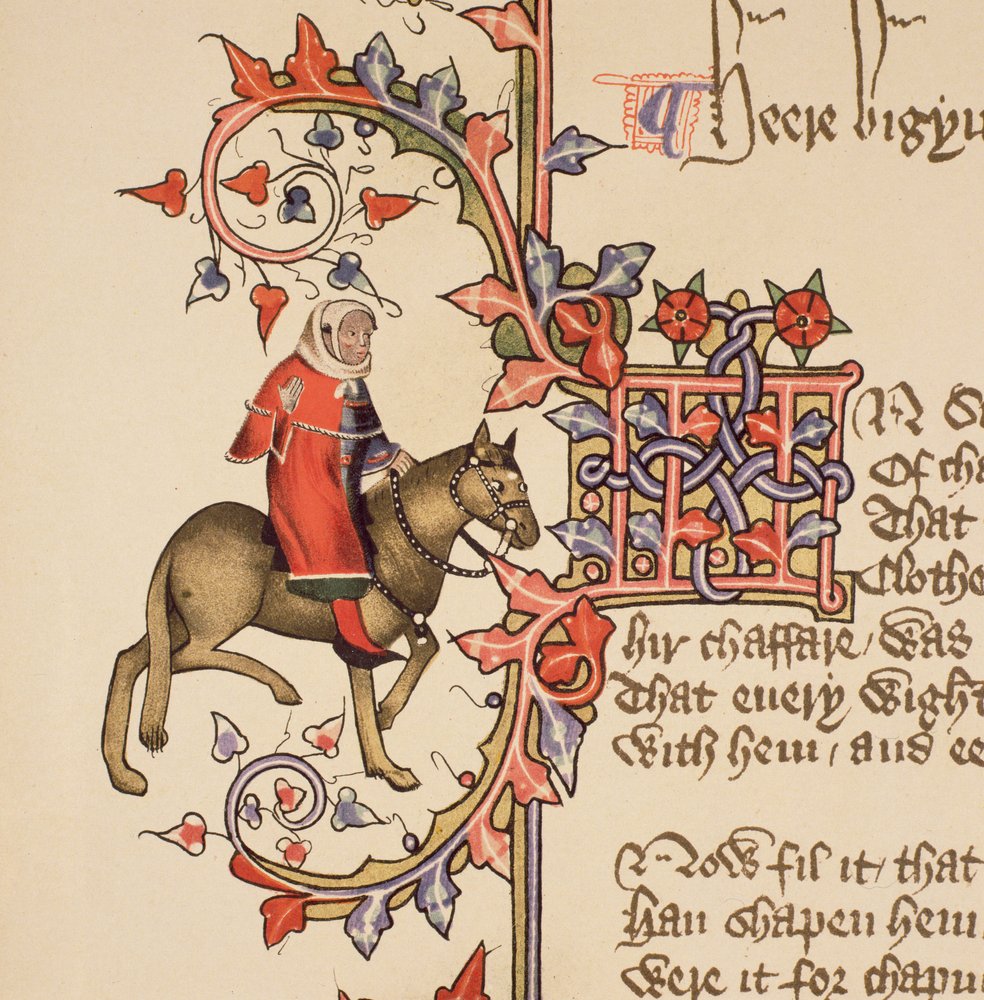 ¶ Heere bigyn
IN Su
Of cha
That
Clothe
hir chaffare / was
That euery wight
With hem / and ee
Now fil it / that
Han shapen hem
Were it for chapm